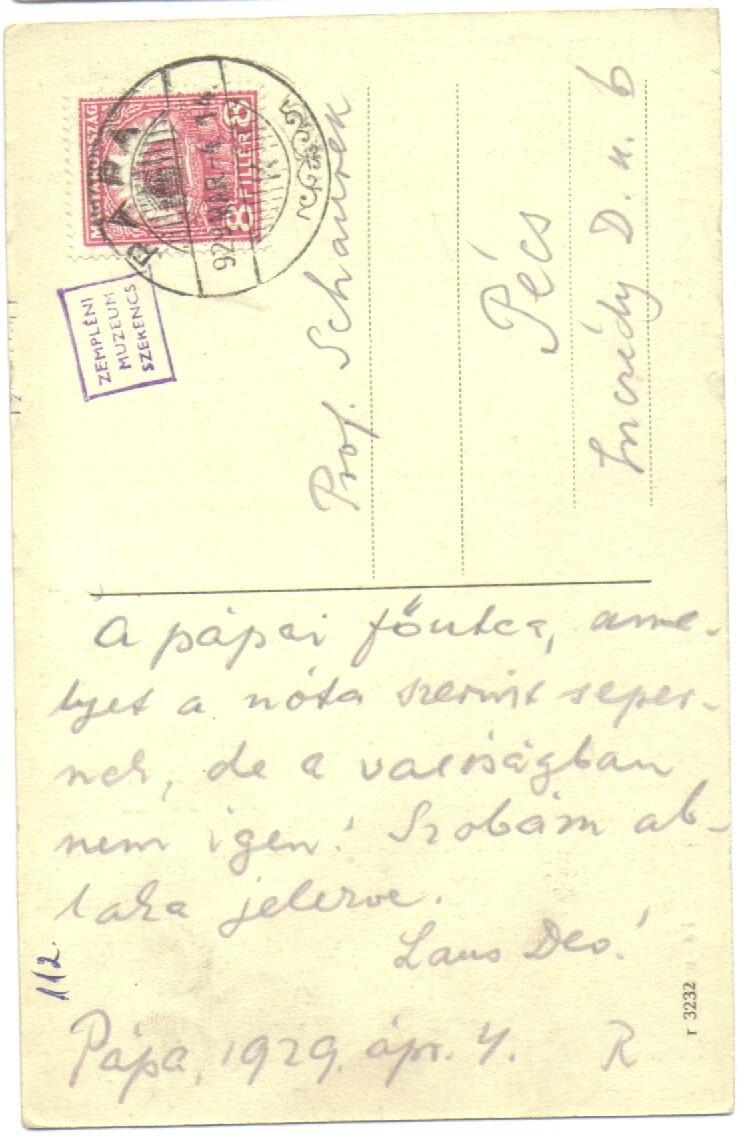 MAGYARORSZÁG
8 FILLÉR 8
PÁPA
929 MAR. 14.
ZEMPLÉNI
MUZEUM
SZERENCS
Prof. Schaurek
Pécs
Inczédy D. u. 6
A pápai főutca, ame-
lyet a nóta szerint seper-
nek, de a valóságban
nem igen! Szobám ab-
laka jelezve.
Laus Deo!
Pápa, 1929. ápr. 4. R
112.
r 3232